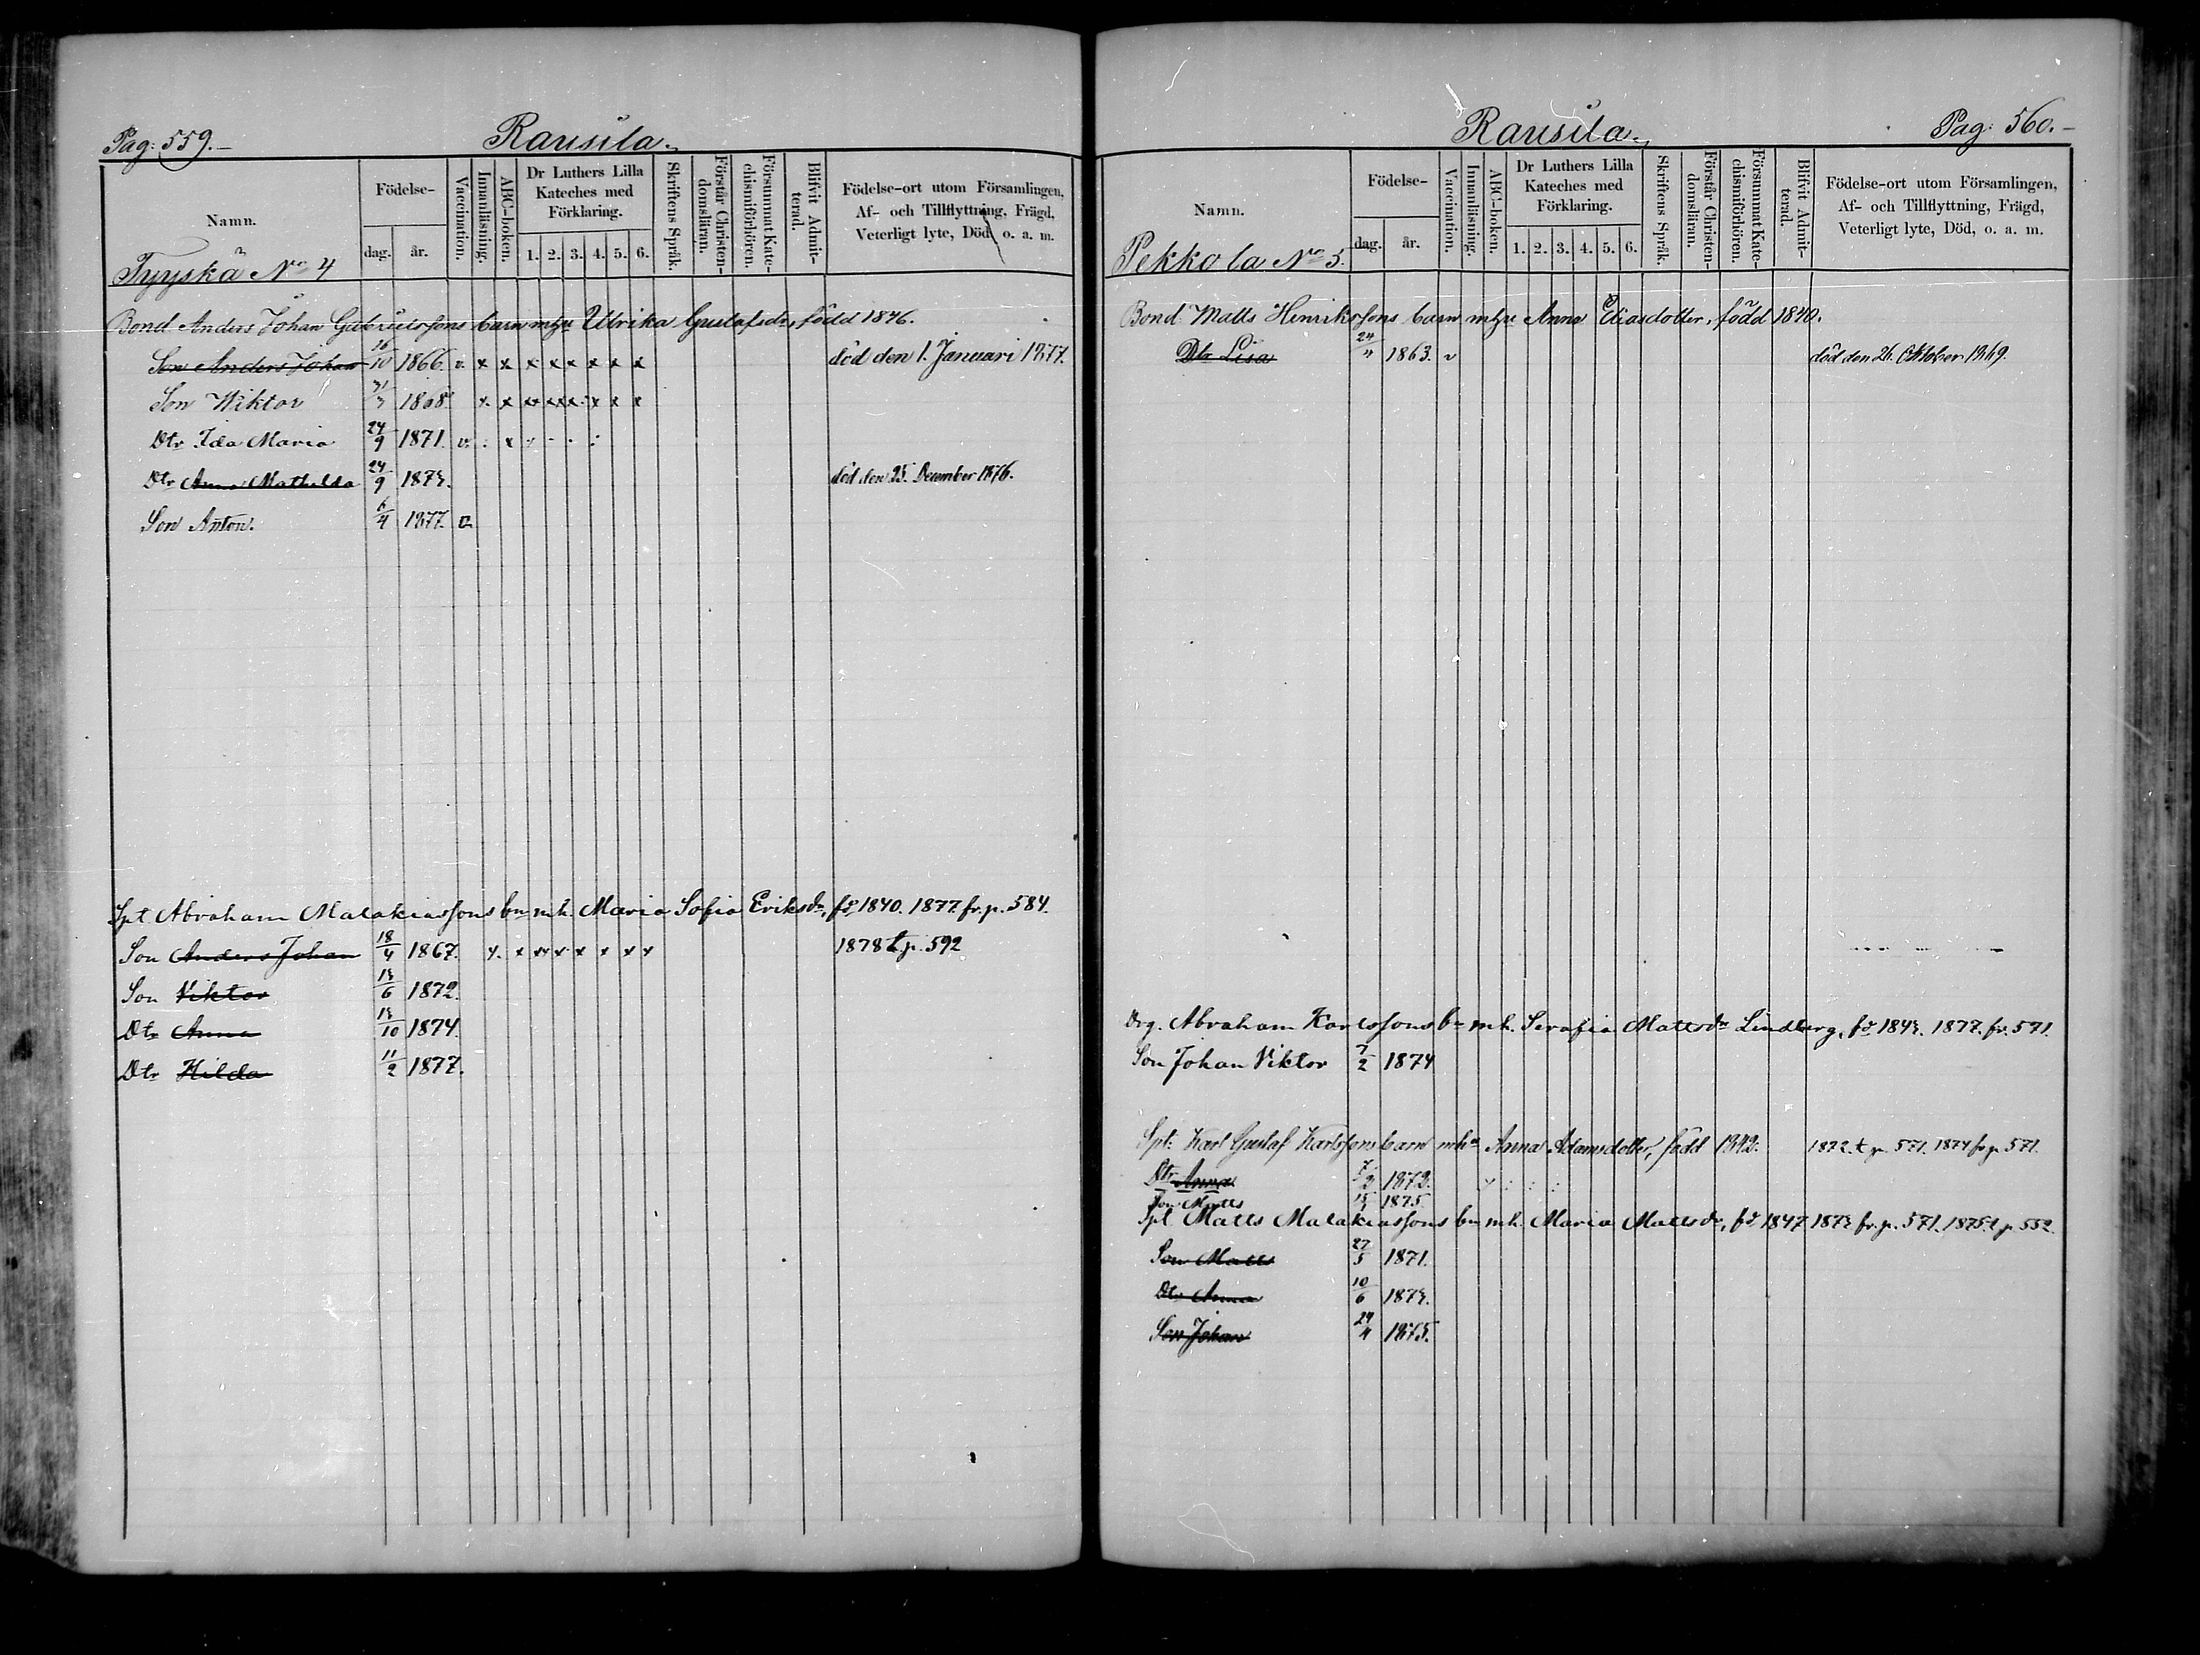 Pag: 559.
Rausila.
Namn.
Födelse-
dag. år.
Vaccination.
Innanläsning.
ABC-boken.
Dr Luthers Lilla
Kateches med
Förklaring.
1. 2. 3. 4. 5. 6.
Skriftens Språk.
Förstår Christen-
domsläran.
Försummat Kate-
chismiförhören.
Blifvit Admit-
terad.
Födelse-ort utom Församlingen,
Af- och Tillflyttning, Frägd,
Veterligt lyte, Död, o. a. m.
Tyyskä No 4
Bond Anders Johan Gabrielssons barn mhu Ulrika Gustafsdr, född 1846.
Son Anders Johan 16/10 1866. v. x x x x x x x x död den 1. Januari 1877.
Son Wiktor 1868. x x x x x x x x
Dtr Ida Maria 24/9 1871. v. x
Dtr Anna Mathilda 24/9 1873. död den 25. December 1876.
Son Anton. 6/4 1877. v.
Spt Abraham Malakiassons bn mh. Maria Sofia Eriksdr, fd 1840. 1877. fr. p. 584.
Son Anders Johan 18/4 1867. x. x x x x x x x x 1878 t. p. 592
Son Viktor 13/6 1872.
Dtr Anna 13/10 1874.
Dtr Hilda 11/2 1877.
Rausila.
Pag: 560.
Namn.
Födelse-
dag. år.
Vaccination.
Innanläsning.
ABC-boken.
Dr Luthers Lilla
Kateches med
Förklaring.
1. 2. 3. 4. 5. 6.
Skriftens Språk.
Förstår Christen-
domsläran.
Försummat Kate-
chismiförhören.
Blifvit Admit-
terad.
Födelse-ort utom Församlingen,
Af- och Tillflyttning, Frägd,
Veterligt lyte, Död, o. a. m.
Pekkola No 5.
Bond Matts Henrikssons barn mhu Anna Eliasdotter, född 1840.
Dtr Lisa 24/4 1863. v död den 26. Oktober 1869.
Drg. Abraham Karlssons bn mh. Serafia Mattsdr Lindberg, fd 1843. 1877. fr. 571.
Son Johan Viktor 7/2 1874
Spt: Karl Gustaf Karlssons barn mhu Anna Adamsdotter, född 1842. 1872. t. p. 571. 1874 fr p. 571.
Dtr Anna 7/2 1872.
Son Matts 1875
Spt Matts Malakiassons bn mh. Maria Mattsdr, fd 1847. 1873 fr. p. 571. 1875 t. p. 552.
Son Matts 27/5 1871.
Dtr Anna 10/6 1873.
Son Johan 24/4 1875.